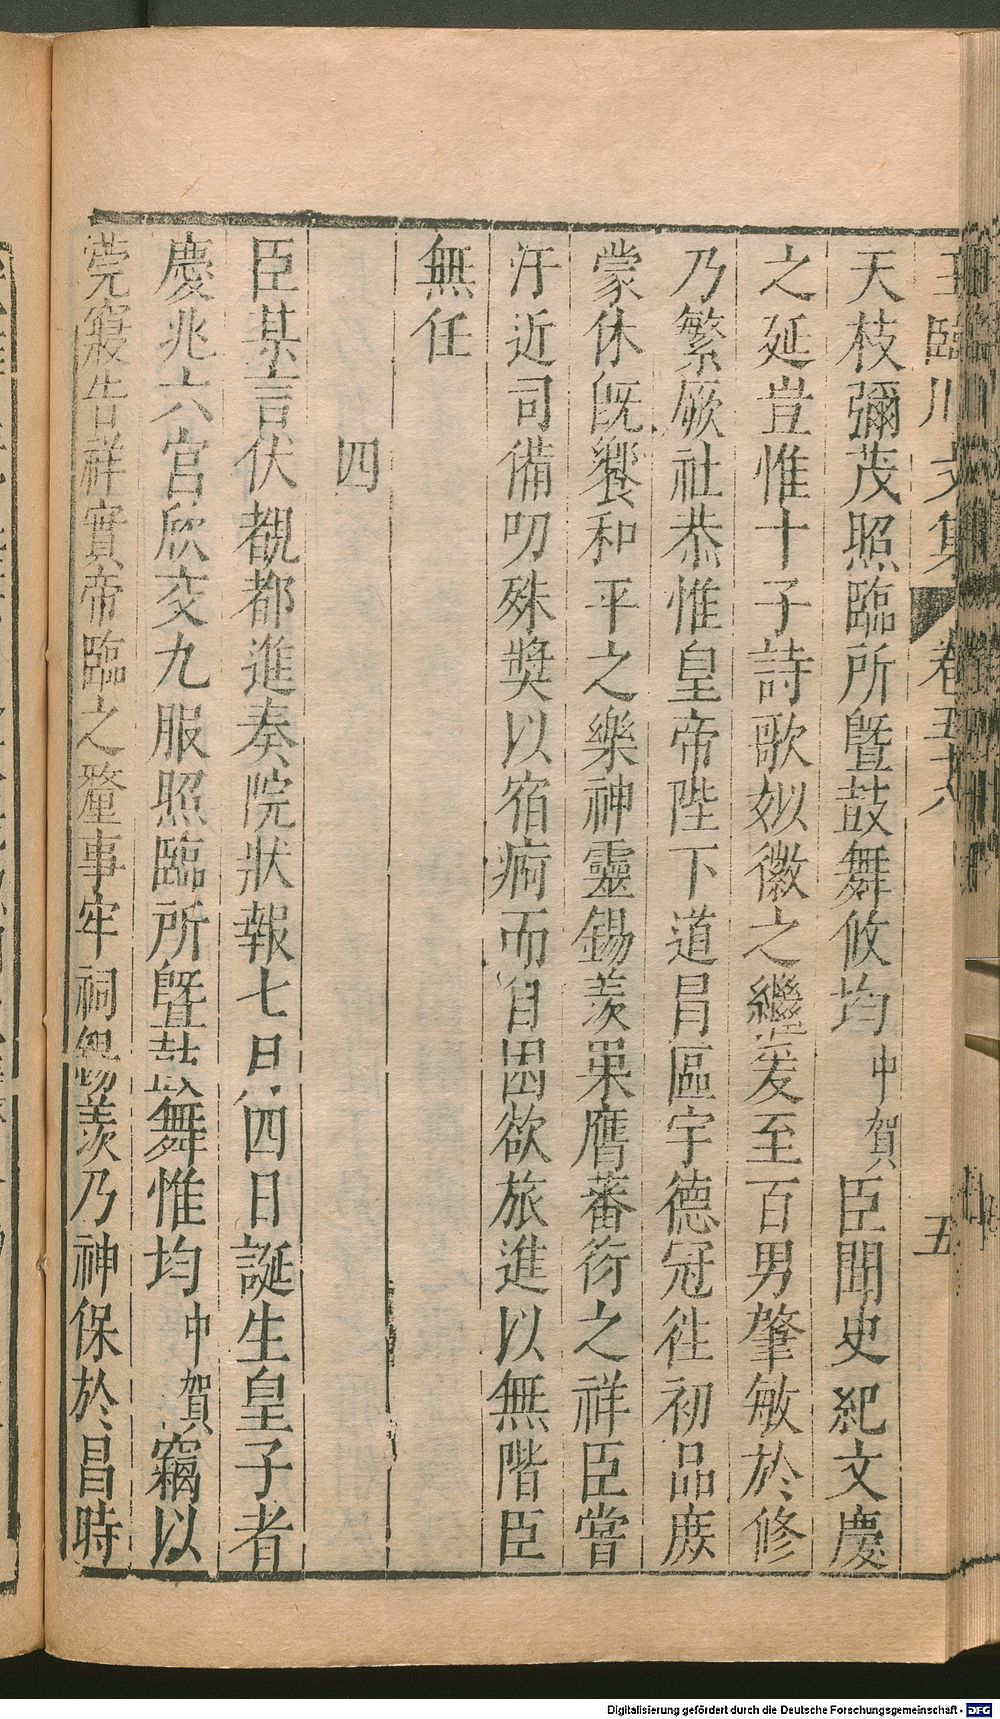 王臨川文集 卷五十八 五
天枝彌茂照臨所曁鼓舞攸均中賀臣聞史紀文慶
之延豈惟十子詩歌姒徽之繼爰至百男肇敏於修
乃繁厥社恭惟皇帝陛下道昌區宇德冠徃初品庶
蒙休旣饗和平之樂神靈錫羨果膺蕃衍之祥臣嘗
汙近司備叨殊奬以宿痾而自困欲旅進以無階臣
無任
四
臣某言伏覩都進奏院狀報七月四日誕生皇子者
慶兆六宮欣交九服照臨所曁鼓舞惟均中賀竊以
莞寢告祥實帝臨之釐事牢祠錫羨乃神保於昌時
Digitalisierung gefördert durch die Deutsche Forschungsgemeinschaft - DFG